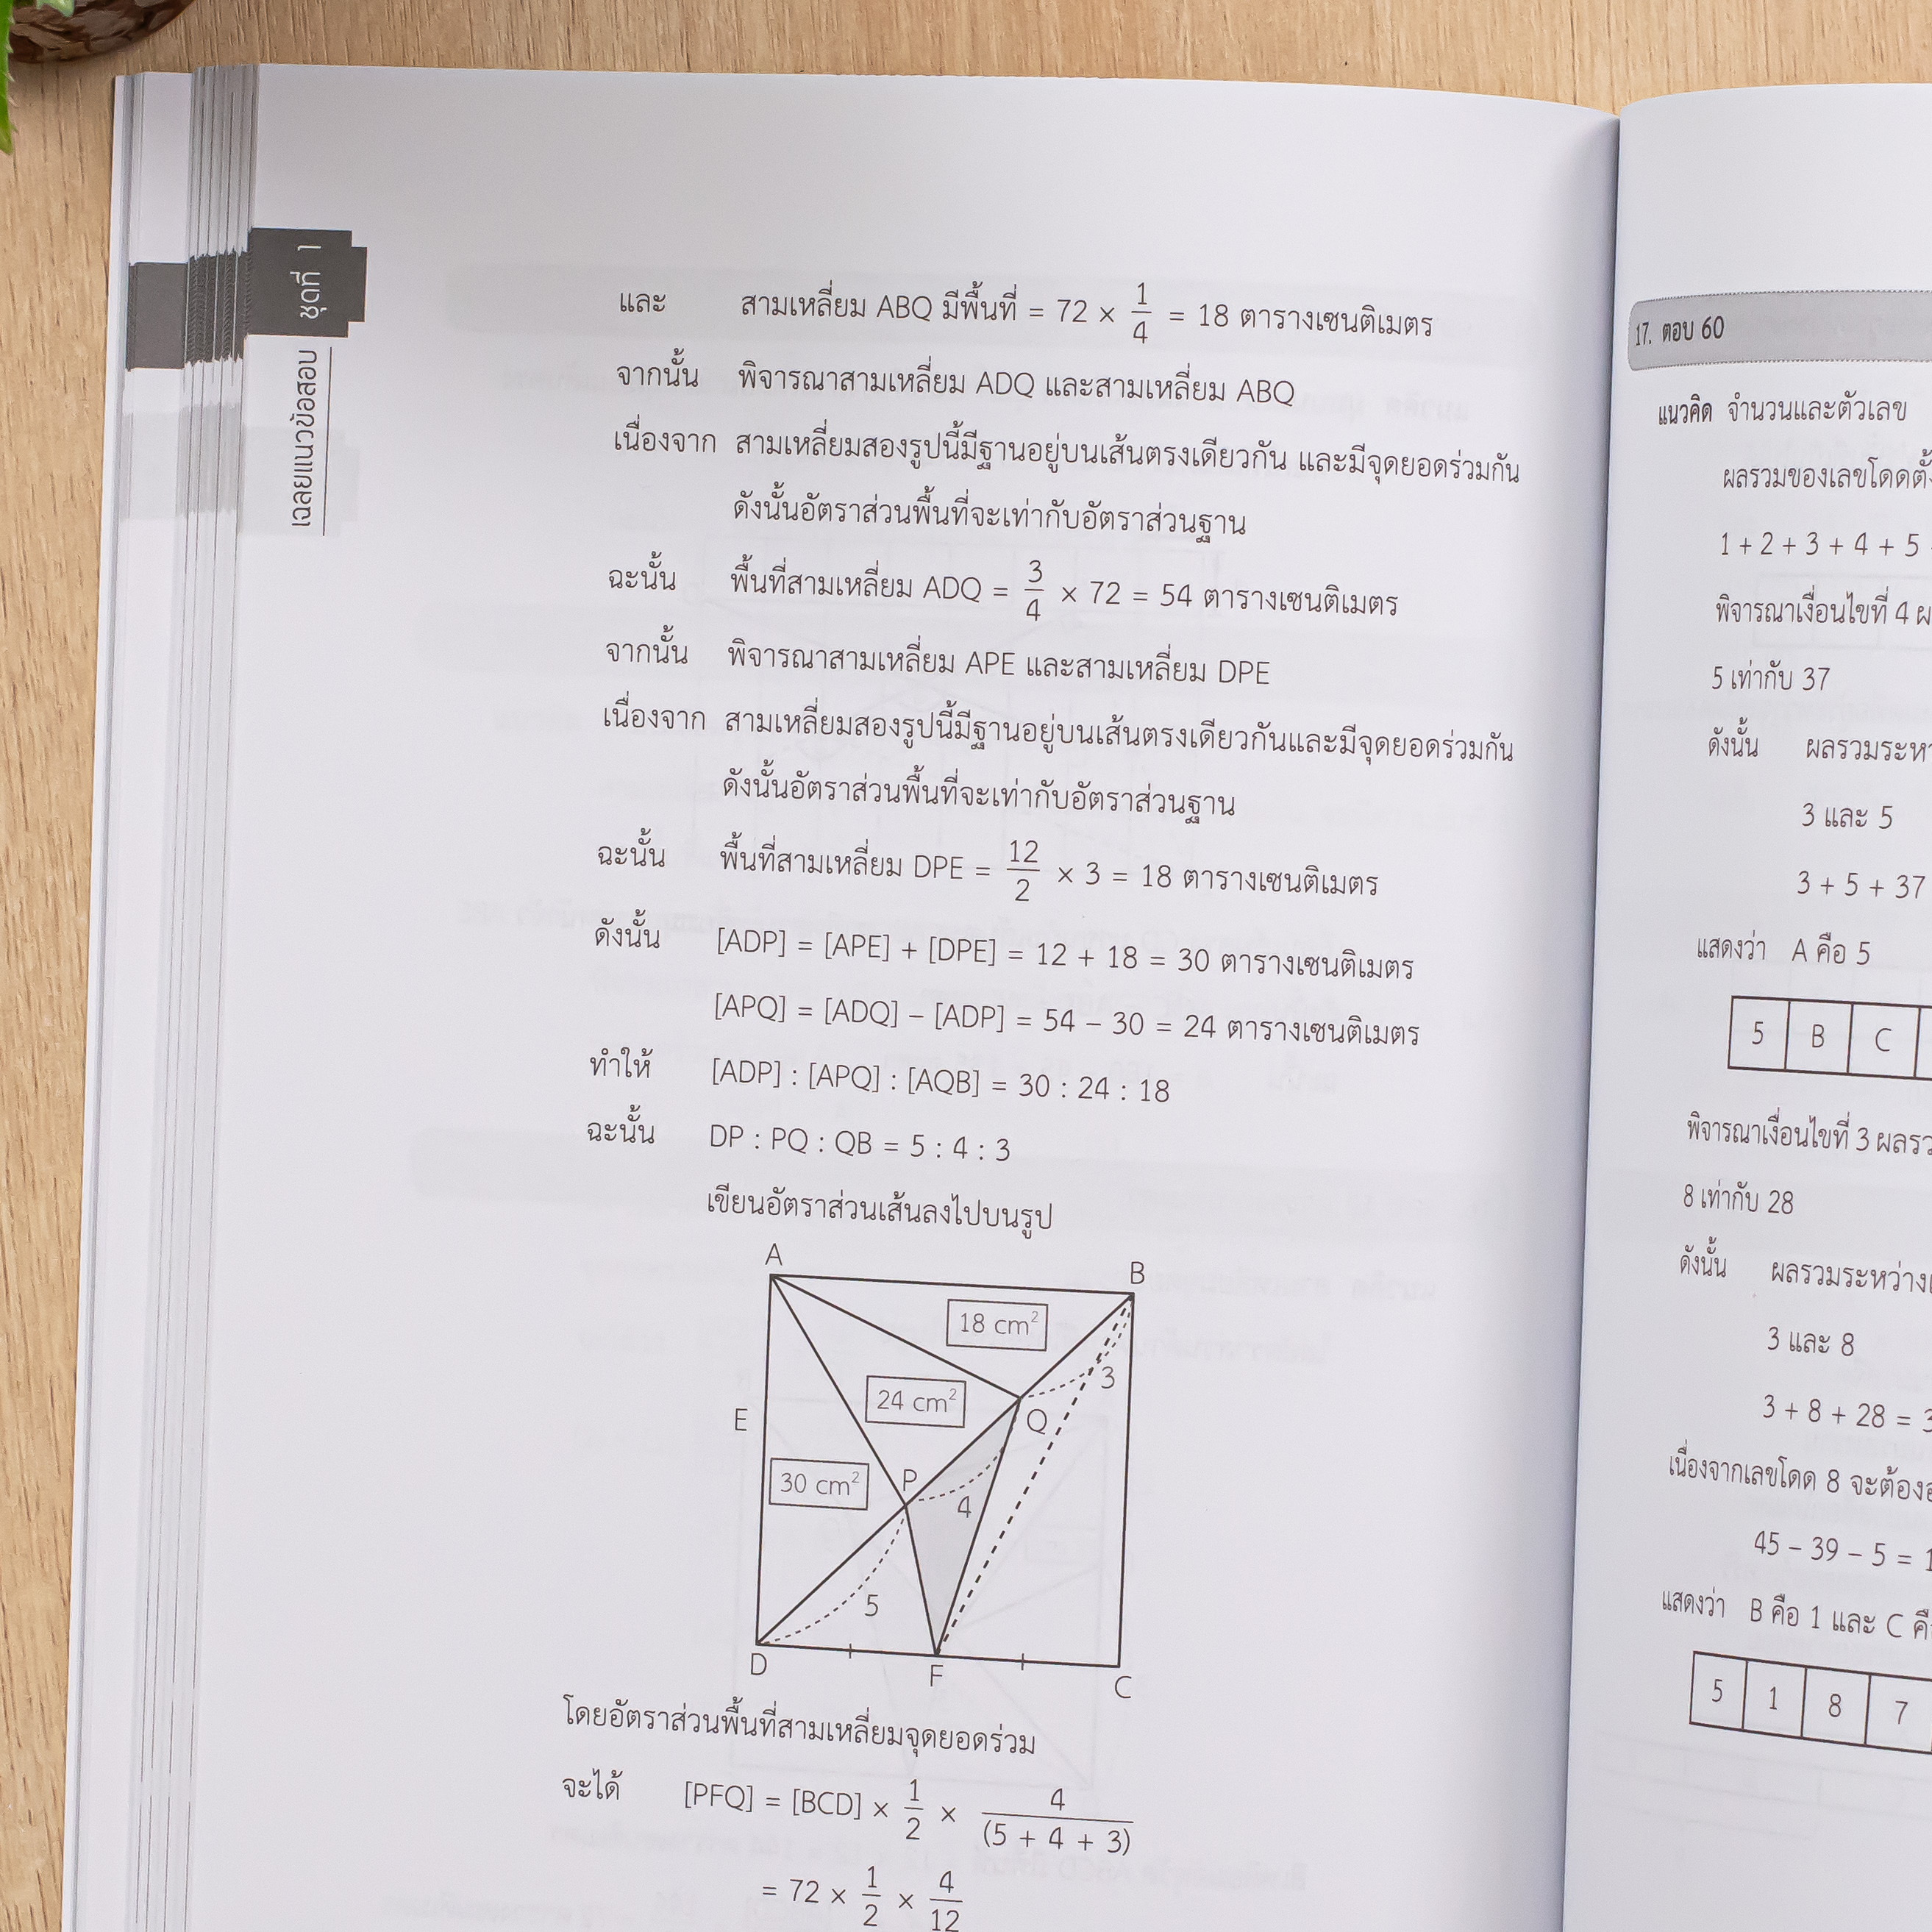 ชุดที่ 1
เฉลยแนวข้อสอบ
และ สามเหลี่ยม ABQ มีพื้นที่ = 72 × 1/4 = 18 ตารางเซนติเมตร
จากนั้น พิจารณาสามเหลี่ยม ADQ และสามเหลี่ยม ABQ
เนื่องจาก สามเหลี่ยมสองรูปนี้มีฐานอยู่บนเส้นตรงเดียวกัน และมีจุดยอดร่วมกัน
ดังนั้นอัตราส่วนพื้นที่จะเท่ากับอัตราส่วนฐาน
ฉะนั้น พื้นที่สามเหลี่ยม ADQ = 3/4 × 72 = 54 ตารางเซนติเมตร
จากนั้น พิจารณาสามเหลี่ยม APE และสามเหลี่ยม DPE
เนื่องจาก สามเหลี่ยมสองรูปนี้มีฐานอยู่บนเส้นตรงเดียวกันและมีจุดยอดร่วมกัน
ดังนั้นอัตราส่วนพื้นที่จะเท่ากับอัตราส่วนฐาน
ฉะนั้น พื้นที่สามเหลี่ยม DPE = 12/2 × 3 = 18 ตารางเซนติเมตร
ดังนั้น [ADP] = [APE] + [DPE] = 12 + 18 = 30 ตารางเซนติเมตร
[APQ] = [ADQ] – [ADP] = 54 – 30 = 24 ตารางเซนติเมตร
ทำให้ [ADP] : [APQ] : [AQB] = 30 : 24 : 18
ฉะนั้น DP : PQ : QB = 5 : 4 : 3
เขียนอัตราส่วนเส้นลงไปบนรูป
A
B
18 cm²
3
24 cm²
E
Q
P
30 cm²
4
5
D
F
C
โดยอัตราส่วนพื้นที่สามเหลี่ยมจุดยอดร่วม
จะได้ [PFQ] = [BCD] × 1/2 × 4/(5 + 4 + 3)
= 72 × 1/2 × 4/12
17. ตอบ 60
แนวคิด จำนวนและตัวเลข
ผลรวมของเลขโดดตั้
1 + 2 + 3 + 4 + 5
พิจารณาเงื่อนไขที่ 4 ผ
5 เท่ากับ 37
ดังนั้น ผลรวมระหว
3 และ 5
3 + 5 + 37
แสดงว่า A คือ 5
5 B C
พิจารณาเงื่อนไขที่ 3 ผลรว
8 เท่ากับ 28
ดังนั้น ผลรวมระหว่าง
3 และ 8
3 + 8 + 28 = 3
เนื่องจากเลขโดด 8 จะต้อง
45 – 39 – 5 = 1
แสดงว่า B คือ 1 และ C คื
5 1 8 7